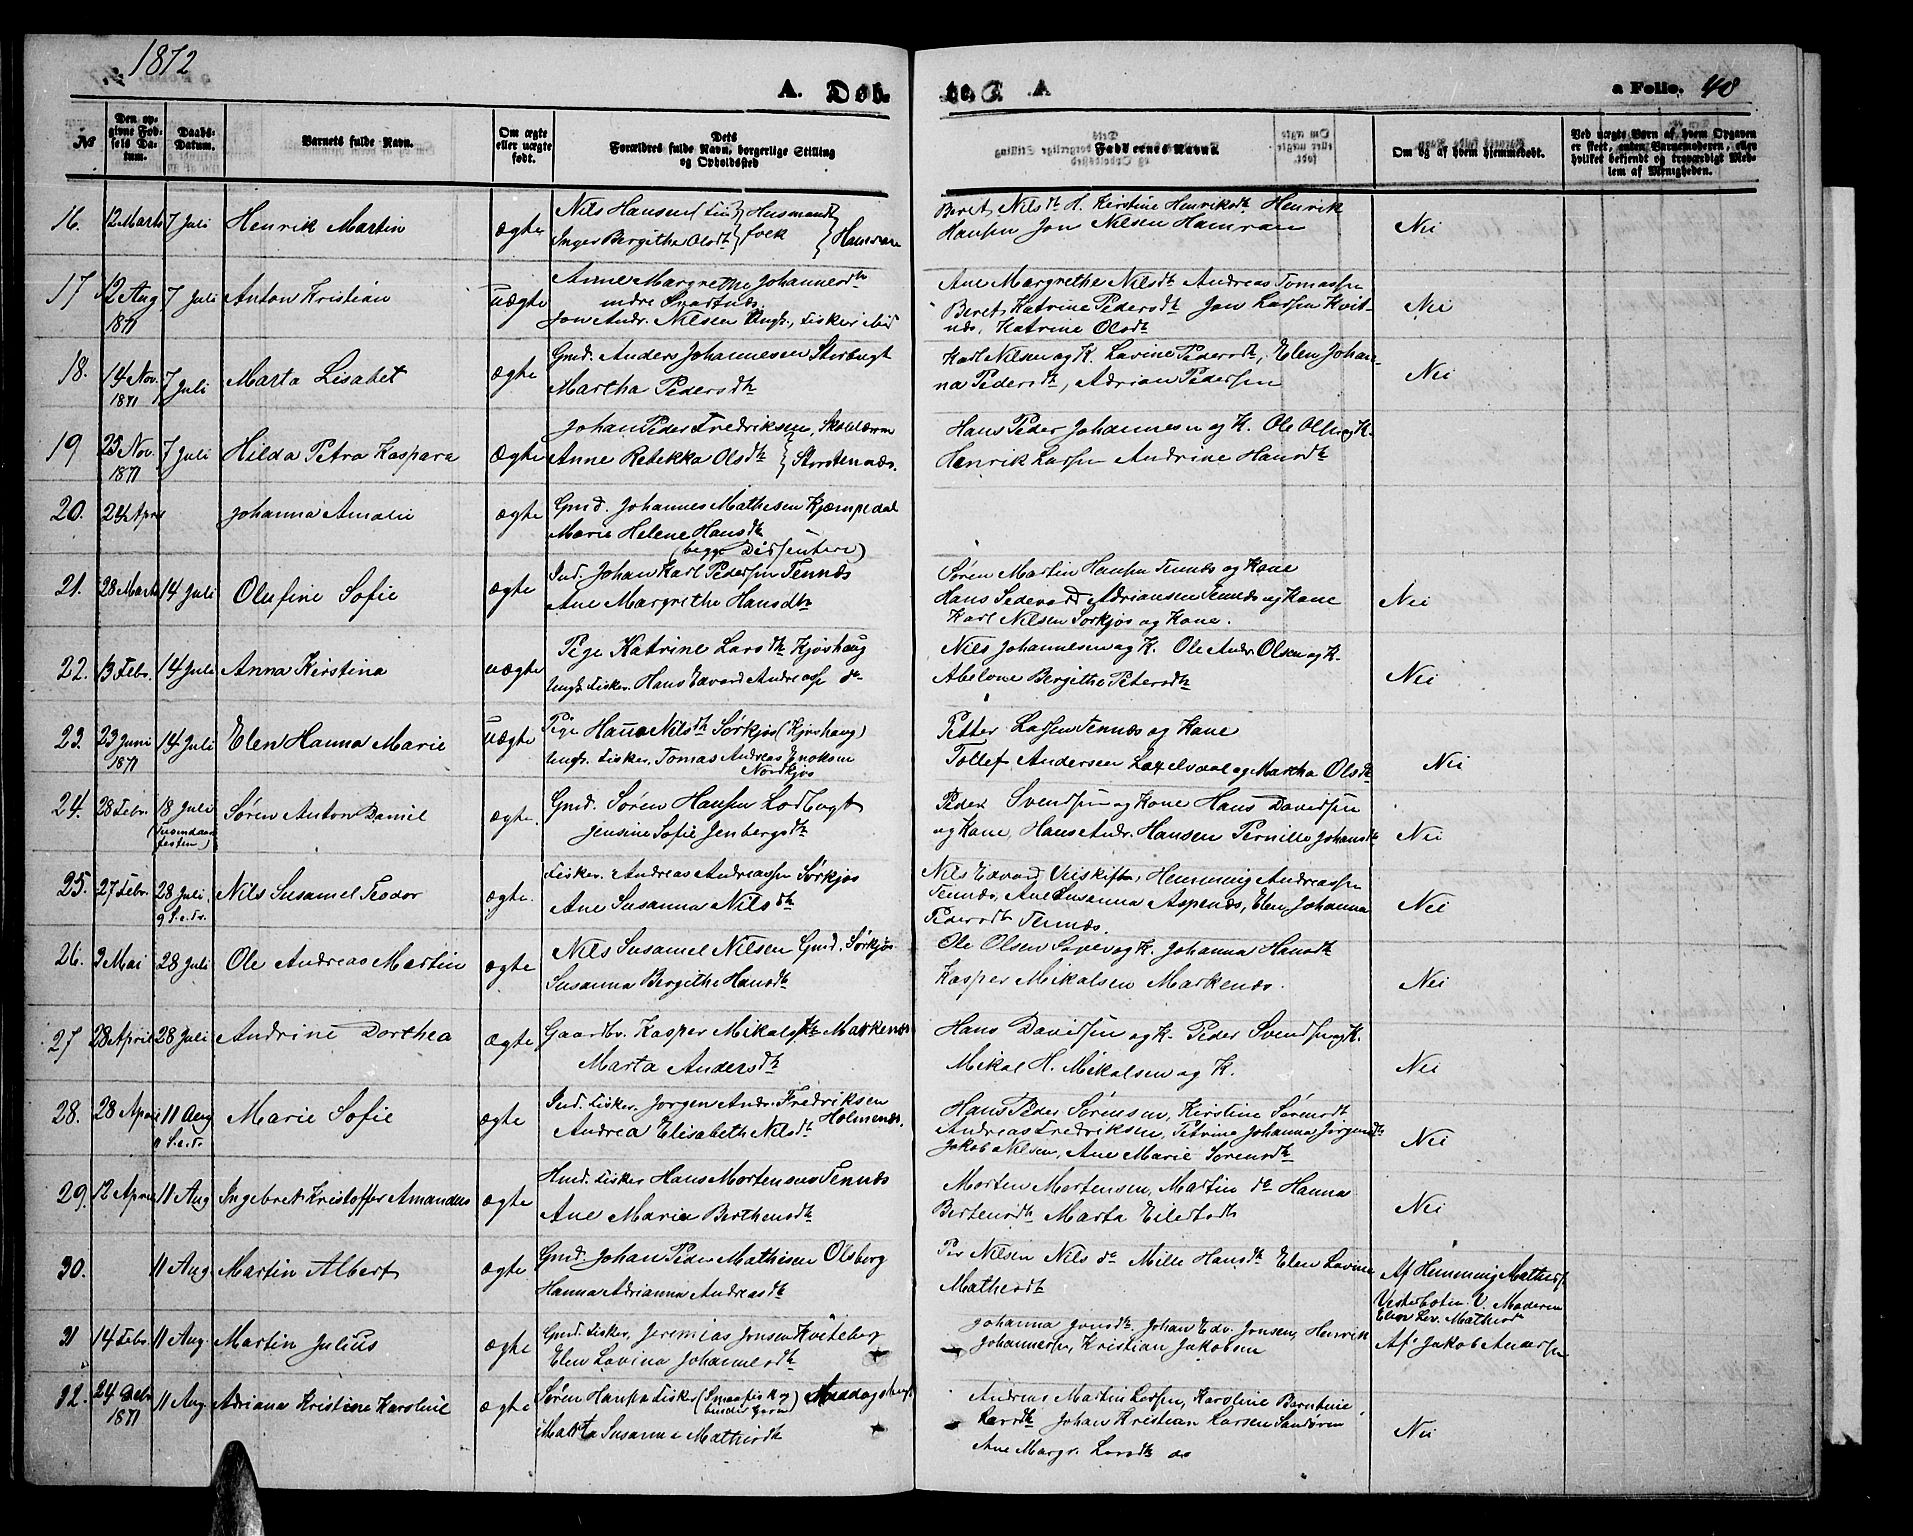 1872
A. Døb-
te. A
a Folio. 48
№
Den op-
givne Fød-
sels Da-
tum.
Daabs-
Datum.
Barnets fulde Navn.
Om ægte
eller uægte
født.
Dets
Forældres fulde Navn, borgerlige Stilling
og Opholdssted
Faddernes Navne
Om og af hvem hjemmedøbt.
Ved uægte Børn af hvem Opgaven
er skeet, enten Barnemoderen, eller
hvilket bekjendt og troværdigt Med-
lem af Menigheden.
16. 12 Marts 7 Juli Henrik Martin ægte Nils Hansen Husmands
Inger Bergithe Olsdtr folk Hamran
Beret Nilsdtr H. Kirstine Henriksdtr Henrik
Hansen Jon Nilsen Hamran Nei
17 12 Aug 1871 7 Juli Anton Kristian uægte Anne Margrethe Johannesdtr
indre Svartnes.
Jon Andr. Nilsen Ungk., Fisker ibid
Ane Margrethe Nilsdtr Andreas Tomassen
Beret Katrine Pedersdtr Jon Larsen Kvit-
nes, Katrine Olsdtr Nei
18. 14 Nov. 1871 7 Juli Marta Lisabet ægte Gmd. Anders Johannesen Storbugt
Martha Pedersdtr
Karl Nilsen og K. Lavine Pedersdtr, Elen Johan-
na Pedersdtr, Adrian Pedersen Nei
19 25 Nov. 1871 7 Juli Hilda Petra Kaspara Ægte Johan Peder Fredriksen, Skolelærer
Anne Rebekka Olsdtr Storstennæs.
Hans Peder Johannesen og K. Ole Olsen og K.
Henrik Larsen Andrine Hansdtr
20. 24 April Johanna Amalie ægte Gmd. Johannes Mathisen Kjæmpedal
Marie Helene Hansdtr
(begge Dissentere)
21. 28 Marts 14 Juli Olufine Sofie ægte Ind. Johan Karl Pedersen Tennæs
Ane Margrethe Hansdtr
Søren Martin Hansen Tennæs og Kone
Hans Adriansen Tennæs og Kone
Karl Nilsen Sørkjos og Kone. Nei
22. 13 Febr. 14 Juli Anna Kirstina uægte Pige Katrine Larsdtr Kjøshaug
Ungk. Fisker. Hans Edvard Andreass. do
Nils Johannesen og K. Ole Andr. Olsen og K.
Abelone Bergithe Petersdtr Nei
23. 23 Juni 1871 14 Juli Elen Hanna Marie uægte Pige Hanna Nilsdtr Sørkjos (Kjøshaug)
Ungk. Fisker. Tomas Andreas Enoksen
Nordkjos
Petter Larsen Tennæs og Kone
Tollef Andersen Laxelvdal og Martha Olsdtr Nei
24. 28 Febr. 18 Juli Søren Anton Daniel ægte. Gmd. Søren Hansen Lodbugt
Jensine Sofie Jenbergsdtr
Peder Svendsen og Kone Hans Davidsen
og Kone, Hans Andr. Hansen Pernille Johansdtr Nei
25. 27 Febr. 28 Juli. 9 S.e.Tr. Nils Susamel Teodor ægte. Fisker. Andreas Andreassen Sørkjos
Ane Susanna Nilsdtr
Nils Edvard Veiskiften, Hemming Andreassen
Tennæs, Ane Susanna Aspenæs, Elen Johanna
Pedersdtr Tennæs. Nei
26. 3 Mai 28 Juli Ole Andreas Martin ægte Nils Susamel Nilsen Gmd. Sørkjos
Susanna Bergithe Hansdtr
Ole Olsen og K. Johanna Hansdtr
Kasper Mikalsen Markenæs. Nei
27 28 April 28 Juli Andrine Dorthea ægte Gaardbr. Kasper Mikalsen Markenæs
Marta Andersdtr
Hans Davidsen og K. Peder Svendsen og K.
Mikal H. Mikalsen og K. Nei
28. 28 April 11 Aug 11 S.e.Tr. Marie Sofie ægte Ind. Fisker. Jørgen Andr. Fredriksen
Andrea Elisabeth Nilsdtr Holmenæs.
Hans Peder Sørensen, Kirstine Sørensdtr
Andreas Fredriksen, Petrine Johanna Jørgensdtr
Jakob Nilsen, Ane Marie Sørensdtr Nei
29. 12 April 11 Aug Ingebret Kristoffer Amandus ægte Hmd. Fisker Hans Mortensen Tennæs
Ane Maria Berthensdtr
Morten Mortensen, Martin do Hanna
Bertensdtr Marta Nei
30. 11 Aug Martin Albert ægte Gmd. Johan Peder Mathisen Olsborg
Hanna Adrianna Andreasdtr
Per Nilsen Nils do Mille Hansdtr Elen Lovine
Mathisdtr Af Hemming Mathiss.
Vesterbotn. V. Moderen
Elen Lov. Mathisd
31 14 Febr. 11 Aug. Martin Julius ægte Gmd. Fisker, Jeremias Jonsen Kviteberg
Elen Lovina Johannesdtr
Johanna Jonsdtr, Johan Edv. Jonsen, Henrik
Johannessen, Kristian Jakobsen Af Jakob Anderssen
32. 24 Debr 1871 11 Aug. Adriana Kristine Karoline ægte Søren Hansen Fisker
Marta Susanna Mathisdtr
Andreas Martin Larsen, Karoline Berntine
Larsdtr Johan Kristian Larsen Sandøren
Ane Margr. Larsdtr do Nei